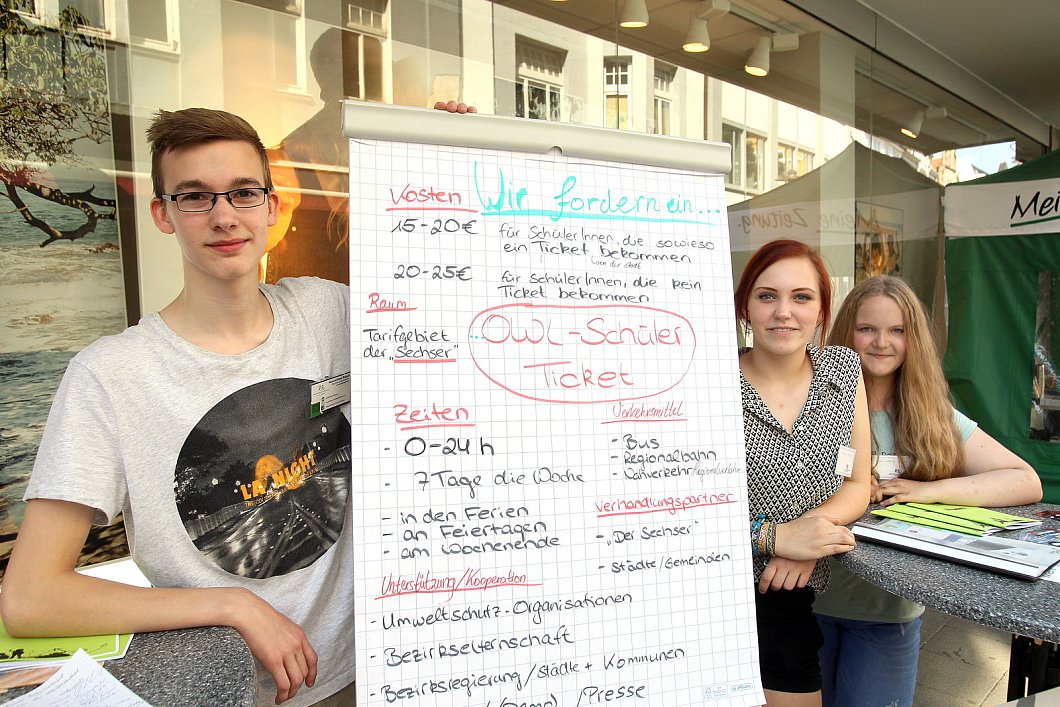 Wir fordern ein...
Kosten
15-20€
für SchülerInnen, die sowieso
ein Ticket bekommen
von der Stadt
20-25€
für SchülerInnen, die kein
Ticket bekommen
Raum
Tarifgebiet
der „Sechser"
...OWL-Schüler
Ticket
Zeiten
- 0-24 h
- 7 Tage die Woche
- in den Ferien
- an Feiertagen
- am Wochenende
Verkehrsmittel
- Bus
- Regionalbahn
- Nahverkehr/Regionalverkehr
Verhandlungspartner
- „Der Sechser"
- Städte/Gemeinden
Unterstützung/Kooperation
- Umweltschutz-Organisationen
- Bezirkselternschaft
- Bezirksregierung/Städte + Kommunen
/Presse
LA NIGHT
Meine Zeitung.
Mei